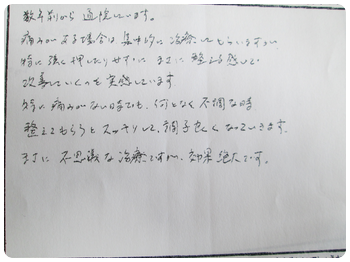 数年前から通院しています。
痛みがある場合は集中的に治療してもらいますが、
特に強く押したりせずに まさに整える感じで
改善していくのを実感しています。
特に痛みがない時でも、何となく不調な時
整えてもらうとスッキリして、調子良くなっていきます。
まさに不思議な治療ですが、効果絶大です。